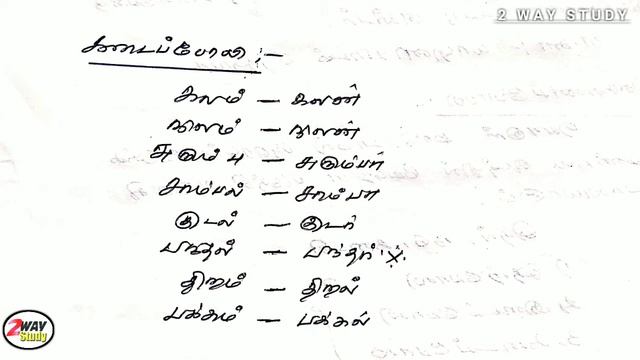 2 WAY STUDY
கடைப்போலி :-
கலம் – கலன்
நலம் – நலன்
சுரும்பு – சுரும்பர்
சாம்பல் – சாம்பர்
குடல் – குடர்
பந்தல் – பந்தர்
திறம் – திறல்
பக்கம் – பக்கல்
2WAY
Study